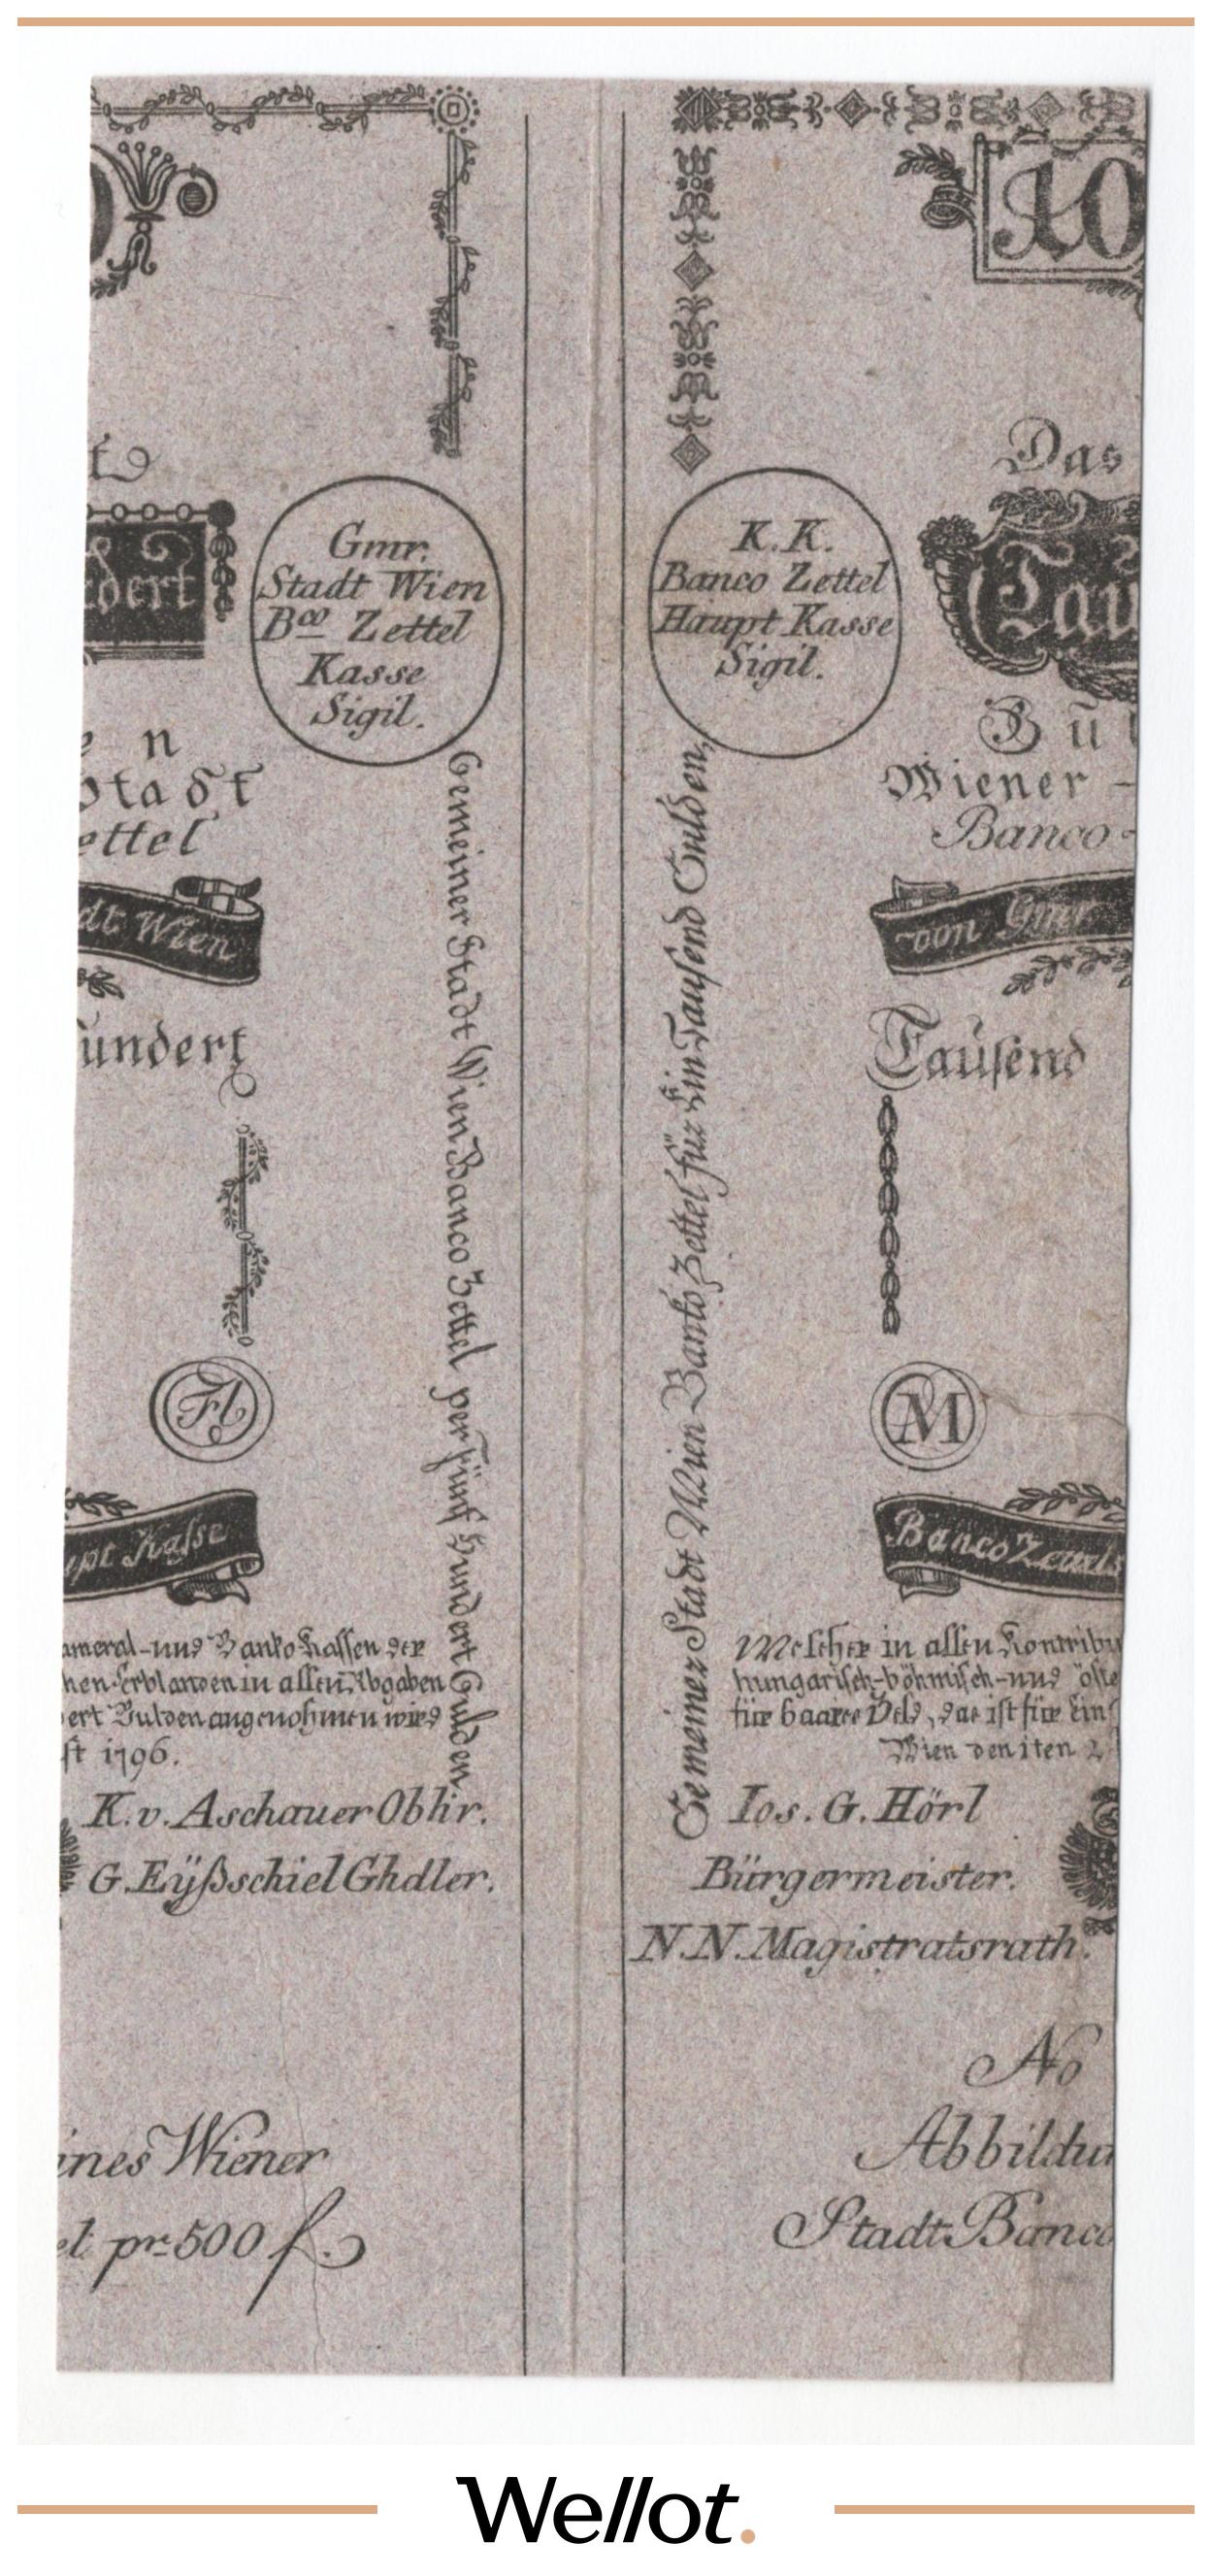 10
t
Das
dert
Gmr.
Stadt Wien
Bco Zettel
Kasse
Sigil.
K. K.
Banco Zettel
Haupt Kasse
Sigil.
Tau
e n
Stadt
ettel
Gul
Wiener -
Banco-
dt Wien
von Gmr
undert
Tausend
Gemeiner Stadt Wien Banco Zettel per Fünf Hundert Gulden
Gemeiner Stadt Wien Banko Zettel für Ein Tausend Gulden,
Fl
M
upt Kasse
Banco Zettels
ameral-und Banko Kassen der
hen Erblanden in allen Abgaben
ert Gulden angenohmen wird
st 1796.
Welcher in allen Kontribu
hungarisch-böhmisch-und öste
für baares Geld, das ist für Ein
Wien den 1ten
K. v. Aschauer Obhr.
G. Eÿßschiel Ghdler.
Ios. G. Hörl
Bürgermeister.
N.N. Magistratsrath.
No
ines Wiener
el pr 500 f.
Abbildun
Stadt Banco
Wellot.